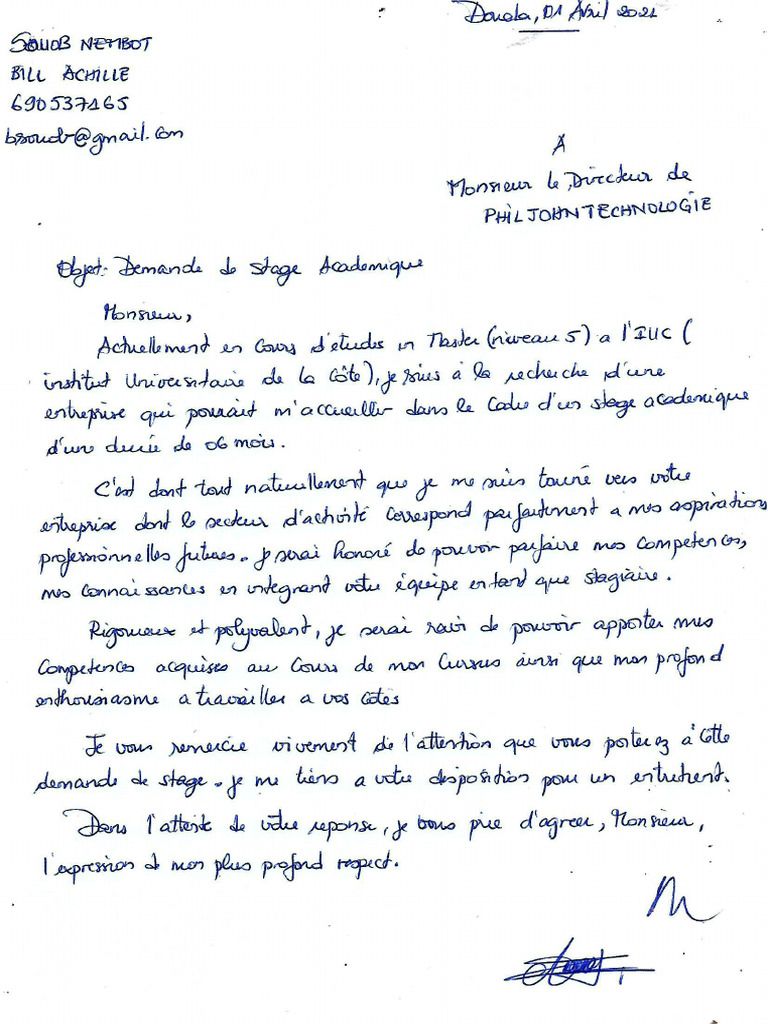 Douala, 01 Avril 2021
SOUOB NEMBOT
BILL ACHILLE
690537165
bsouob@gmail.com
A
Monsieur le Directeur de
PHILJOHNTECHNOLOGIE
Objet: Demande de stage Academique
Monsieur,
Actuellement en Cours d'études en Master (niveau 5) a l'IUC (
institut Universitaire de la Côte), je suis à la recherche d'une
entreprise qui pourrait m'accueiller dans le Cadre d'un stage academique
d'une durée de 06 mois.
C'est dont tout naturellement que je me suis tourné vers votre
entreprise dont le secteur d'activité correspond parfaitement a mes aspirations
professionnelles futures. je serai honoré de pouvoir parfaire mes competences,
mes connaissances en integrant votre équipe entant que stagiaire.
Rigoureux et polyvalent, je serai ravi de pouvoir apporter mes
Competences acquises au Cours de mon Cursus ainsi que mon profond
enthousiasme a travailler a vos côtés
Je vous remercie vivement de l'attention que vous porterez à Cette
demande de stage. je me tiens a votre disposition pour un entretient.
Dans l'attente de votre reponse, je vous prie d'agreer, Monsieur,
l'expression de mon plus profond respect.